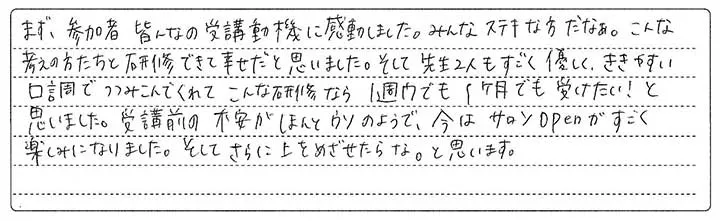 まず、参加者 皆んなの受講動機に感動しました。みんなステキな方だなぁ。こんな
考えの方たちと研修できて幸せだと思いました。そして先生2人もすごく優しく、ききやすい
口調でつつみこんでくれて こんな研修なら 1週間でも1ヶ月でも受けたい!と
思いました。受講前の不安がほんとウソのようで、今はサロンOpenがすごく
楽しみになりました。そしてさらに上をめざせたらな。と思います。